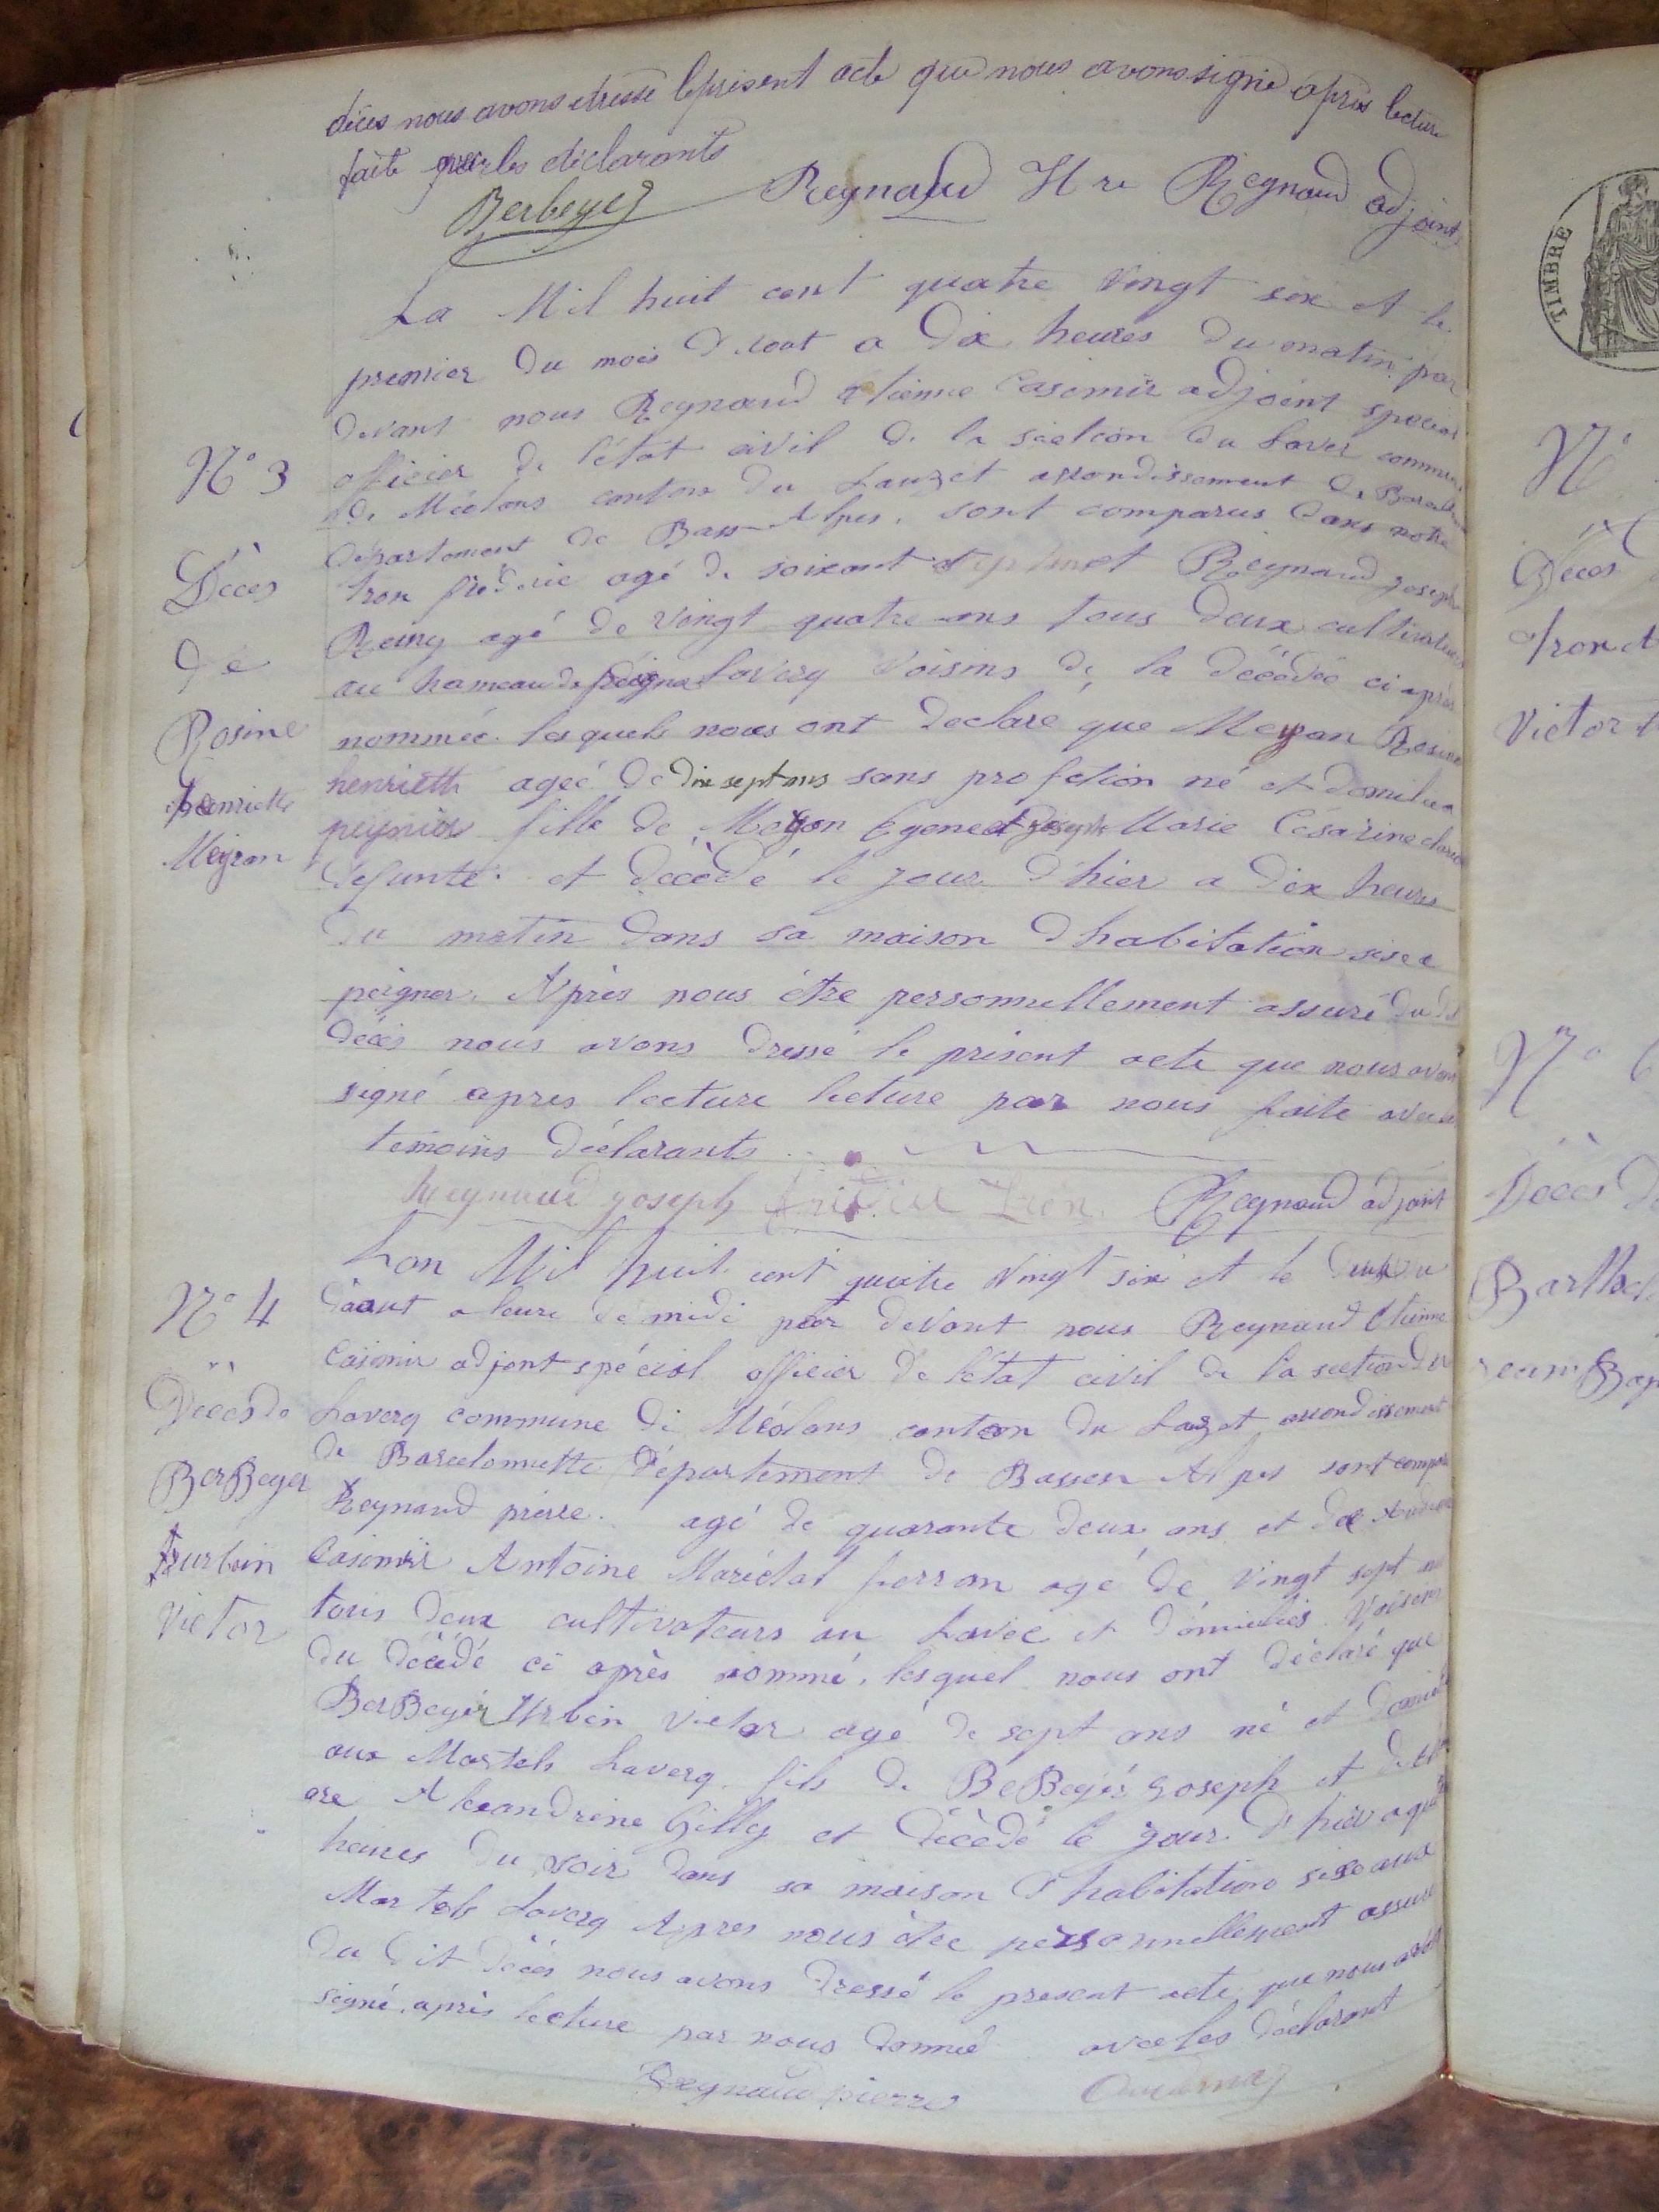 décès nous avons dressé le présent acte que nous avons signé après lecture
faite par les déclarants
Berbeyer Reynaud Hre Reynaud adjoint
La Mil huit cent quatre Vingt six et le
premier du mois D'aout a Dix heures Du matin par
Devant nous Reynaud Etienne Casemir adjoint special
N° 3
officier de l'état civil de la section du Laver commune
de Méolans canton du Lauzet arrondissement de
Département de Bass Alpes, sont comparus dans notre
Décès
tron fréderic agé de soixant et Reynaud joseph
Remy agé de Vingt quatre ans tous deux cultivateurs
de
au hameau de Laverq Voisins de la Décédée ci après
Rosine
nommée. lesquels nous ont declaré que Meyran Rosine
henriette
henriette ageé de dix sept ans sans profetion né et domiliée
Meyran
fille de Meyran Marie Césarine
défunte. et décèdé le jour d'hier a dix heures
du matin dans sa maison d'habitation sise a
peigner. Après nous être personnellement assuré du dit
décès nous avons dressé le présent acte que nous avons
signé apres lecture lecture par nous faite avec les
témoins déclarants
Reynaud joseph Reynaud adjoint
Lan Mil huit cent quatre Vingt six et le deux du
N° 4
daout a leure de midi par devant nous Reynaud Etienne
Casimir adjont spécial officier de l'état civil de la section du
Décès de
Laverq commune de Méolans canton du Lauzet arrondissement
de Barcelonnette Département de Basses Alpes sont
BerBeyer
Reynaud pierre. agé de quarante deux ans et de
urbain
Casimir Antoine Maréchal agé de Vingt sept ans
Victor
tous deux cultivateurs au Laver et domicilies Voisins
du décédé ci après nommé, lesquel nous ont déclaré que
BerBeyer Urbin Victor agé de sept ans né et
aux Martels Laverq, fils de BeBeyer Joseph et de
Alexandrine Gilly et décèdé le jour d'hier a
heures du soir dans sa maison d'habitation sise aux
Martels Laverq Apres nous être personnellement assuré
du dit décès nous avons dressé le present acte que nous avons
signé, après lecture par nous donnée avec les déclarant
Reynaud pierre
TIMBRE
N°
Décès
tron
Victor
N° 6
Décès de